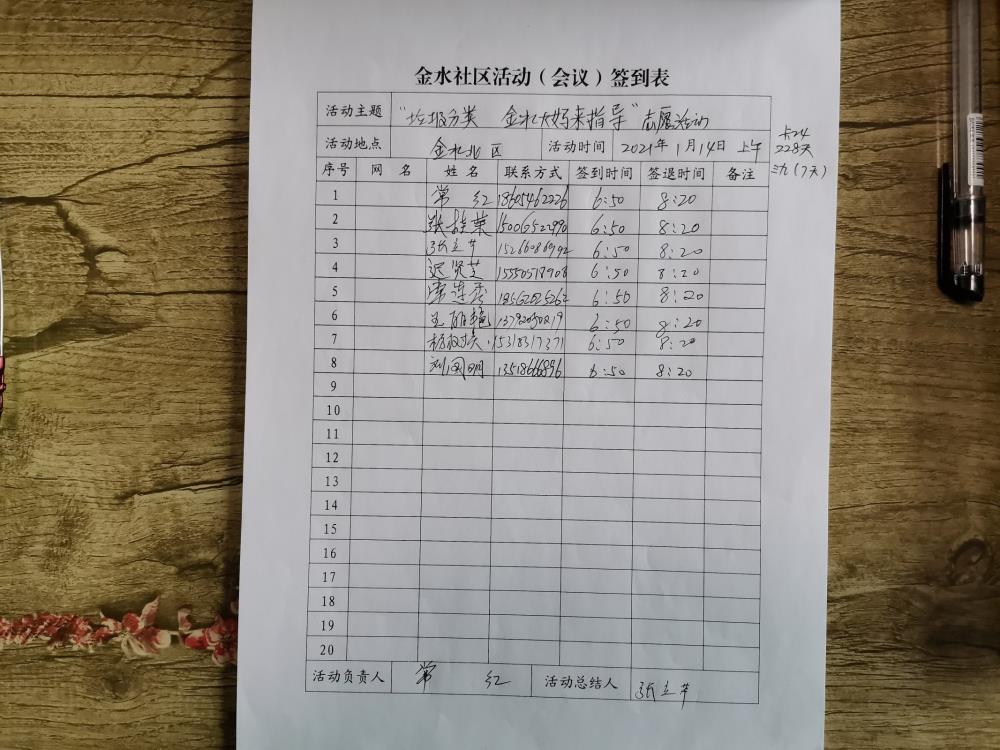 金水社区活动（会议）签到表
活动主题 “垃圾分类 金水大妈来指导”志愿活动
活动地点 金水北区 活动时间 2021年1月14日 上午
228天
三九（7天）
序号 网 名 姓 名 联系方式 签到时间 签退时间 备注
1 常 红 18605462226 6:50 8:20
2 6:50 8:20
3 张立芹 15266086992 6:50 8:20
4 迟贤芝 15550518908 6:50 8:20
5 常连秀 18562025262 6:50 8:20
6 王丽艳 6:50 8:20
7 15318317371 6:50 8:20
8 刘国明 6:50 8:20
9
10
11
12
13
14
15
16
17
18
19
20
活动负责人 常 红 活动总结人 张立芹